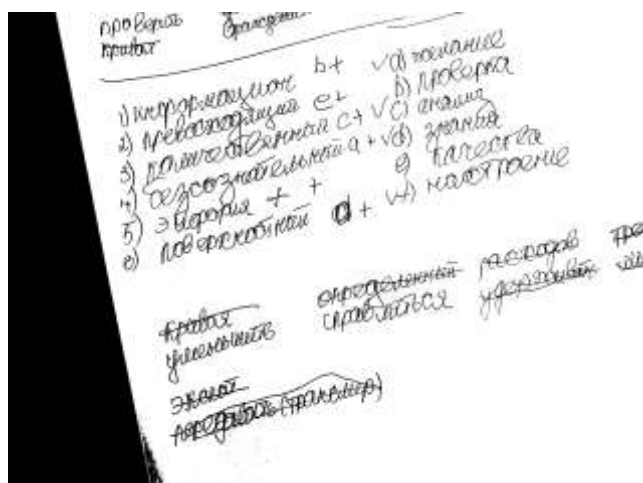 проверить
привет
1) информацион b+ ✓ a) желание
2) превосходящий e+ b) проверка
3) количественный c+ ✓ c) анализ
4) безсознательный a+ ✓ d) знания
5) эйфория f + e) качества
6) поверхностный d + ✓ f) настроение
кривая определенный расходов
уменьшить справляться удерживать